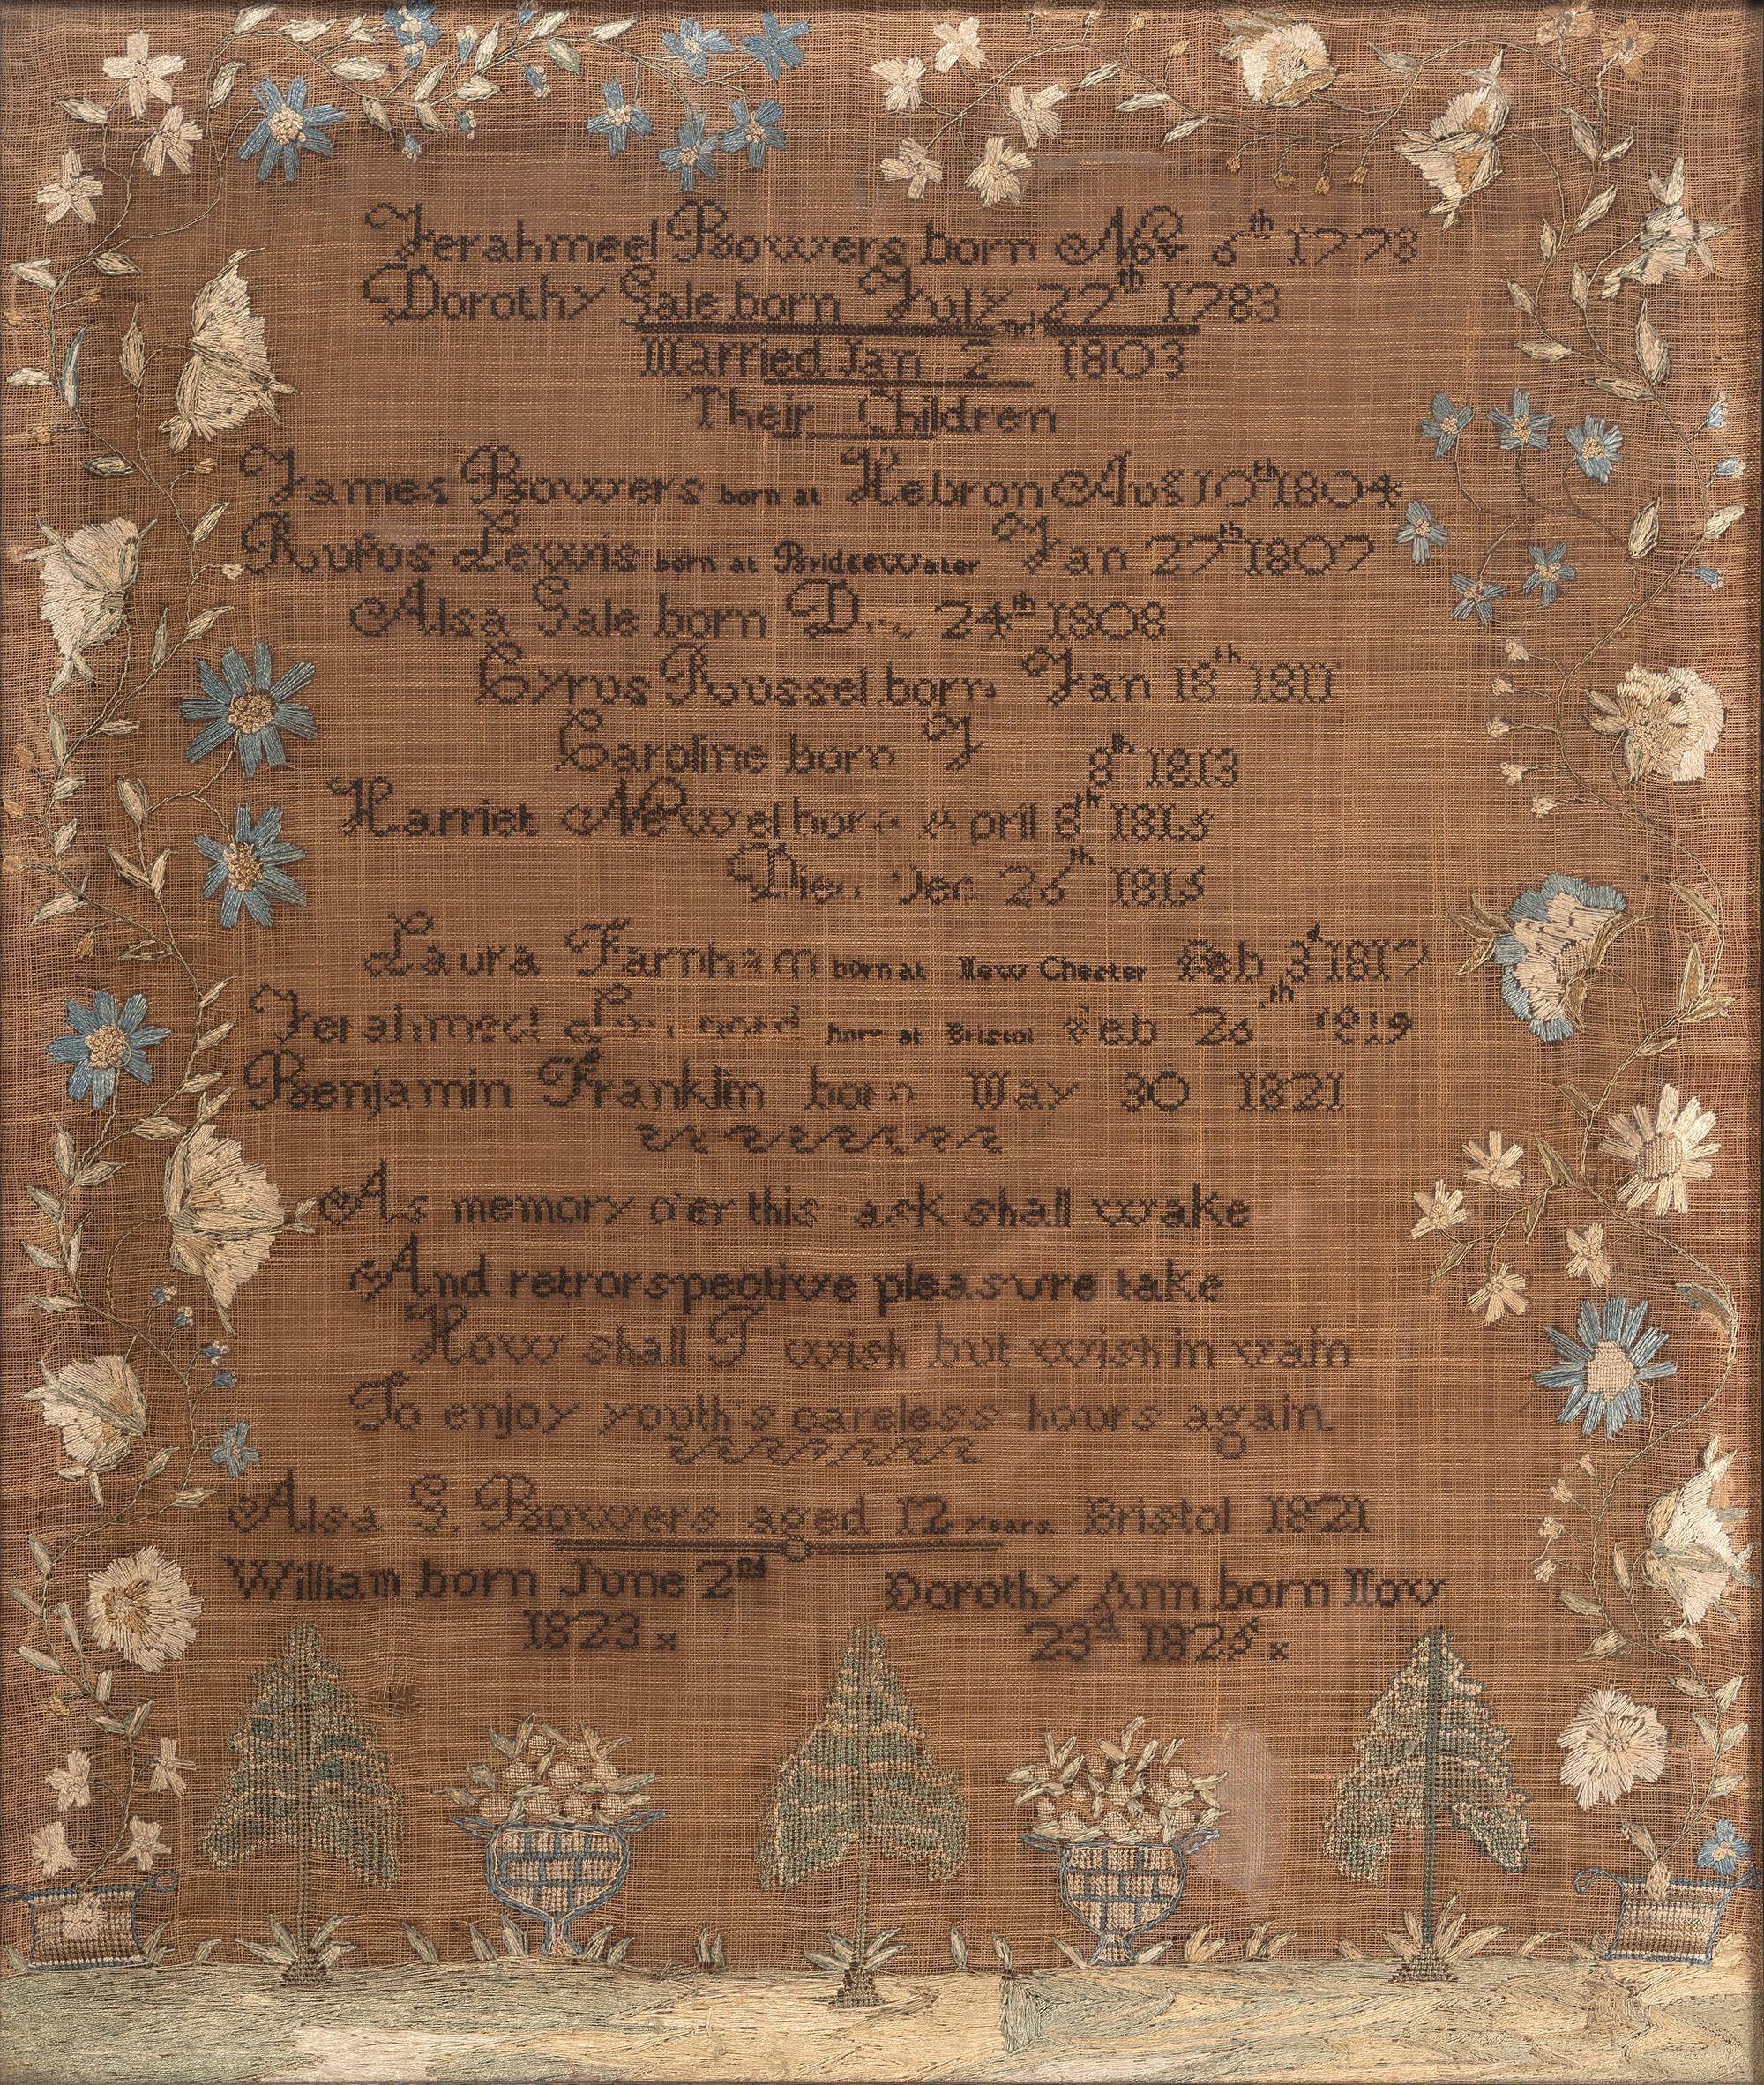 Jerahmeel Bowers born Nov 6th 1773
Dorothy Sale born July 27th 1783
Married Jan 2nd 1803
Their Children
James Bowers born at Hebron Aug 10th 1804
Rufus Lewis born at Bridgewater Jan 27th 1807
Alsa Sale born 24th 1808
Cyrus Russel born Jan 18th 1811
Caroline born 8th 1813
Harriet Newel born April 8th 1815
Died Dec 26th 1815
Laura Farnham born at New Chester Feb 3d 1817
Jerahmeel born at Bristol Feb 26th 1819
Benjamin Franklin born May 30 1821
As memory o'er this ask shall wake
And retrorspective pleasure take
How shall I wish but wish in vain
To enjoy youth's careless hours again.
Alsa S. Bowers aged 12 years. Bristol 1821
William born June 2nd Dorothy Ann born Nov
1823 x 23d 1825 x